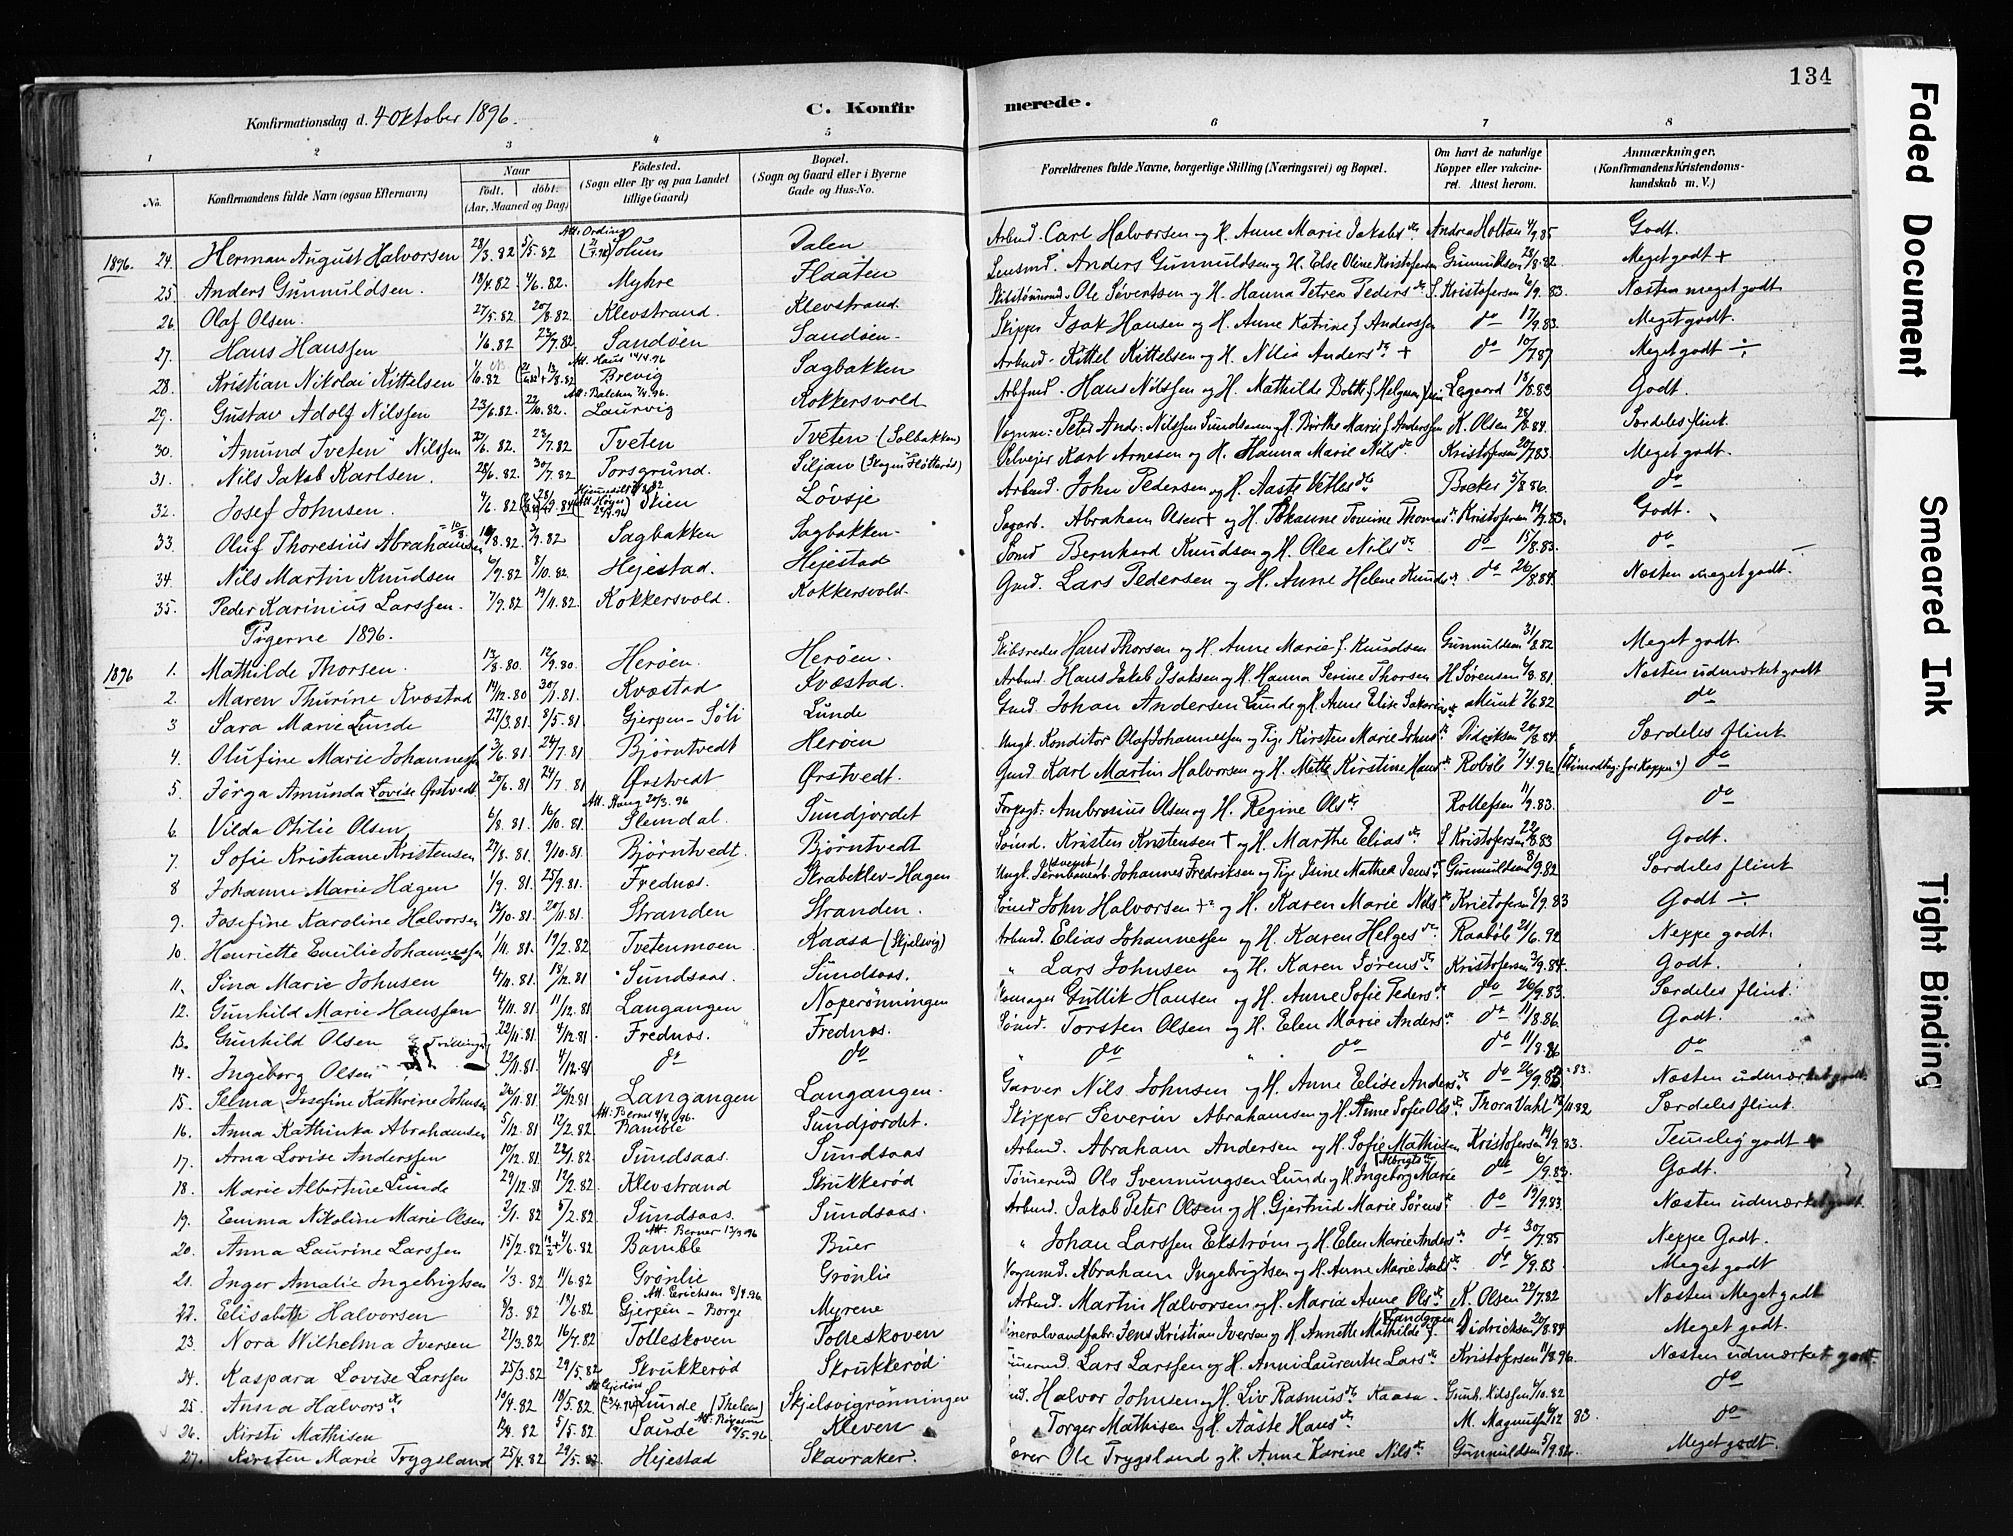 134
Konfirmationsdag d. 4 Oktober 1896.
C. Konfirmerede.
1 2 3 4 5 6 7 8
No.
Konfirmandens fulde Navn (ogsaa Efternavn)
Naar
født. døbt.
(Aar, Maaned og Dag)
Fødested.
(Sogn eller By og paa Landet tillige Gaard)
Bopæl.
(Sogn og Gaard eller i Byerne Gade og Hus-No.
Forældrenes fulde Navne, borgerlige Stilling (Næringsvei) og Bopæl.
Om havt de naturlige Kopper eller vakcineret. Attest herom.
Anmærkninger,
(Konfirmandens Kristendomskundskab m. V.)
1896. 24. Herman August Halvorsen 28/3.82 5/5.82 Solum Dalen Arbmd. Carl Halvorsen og H. Anne Marie Jakobs dr. Andrea Holtan 4/9.85 Godt.
25 Anders Gunnuldsen. 18/4.82 4/6.82. Myhre Flaaten Lensmd. Anders Gunnuldsen og H. Else Oline Kristofersen Gunnuldsen 28/8.82 Meget godt +
26. Olaf Olsen. 27/5.82 20/8.82 Klevstrand. Klevstrand. Ole Sivertsen og H. Hanna Petrea Peders dr. S. Kristofersen 6/9.83. Næsten meget godt
27. Hans Hanssen 1/6.82 23/7.82 Sandøen Sandøen Skipper Isak Hansen og H. Anne Katrine f. Anderssen do 17/9.83. Meget godt.
28. Kristian Nikolai Kittelsen 1/6.82 13/8.82 Brevig Sagbakken Arbmd. Kittel Kittelsen og H. Nilia Anders dr. + do 10/7.87 Meget godt ÷
29. Gustav Adolf Nilssen 23/6.82 22/10.82. Laurvig Kokkersvold Hans Nilssen og H. Mathilde Legaard 18/8.83 Godt.
30. "Amund Tveten" Nilssen 27/6.82. 23/7.82 Tveten Tveten (Solbakken) Peter Ands. Nilssen Sundsaasen og H. Birthe Marie f. Anderssen K. Olsen 28/8.84. Særdeles flink.
31. Nils Jakob Karlsen. 28/6.82. 30/7.82 Porsgrund. Siljan Selvejer Karl Arnesen og H. Hanna Marie Nils dr. Kristofersen 20/7.83. Meget godt.
32. Josef Johnsen. 4/6.82 Skien Løvsje Arbmd. John Pedersen og H. Aaste Vetles dr. Backer 5/8.86. do
33. Oluf Thoresius Abrahamsen 10/8.82. 3/9.82 Sagbakken Sagbakken Sagarb. Abraham Olsen + og H. Johanne Tomine Thomas dr. Kristofersen 19/9.83. Godt.
34. Nils Martin Knudsen 6/9.82 8/10.82. Hejestad. Hejestad Sømd Bernhard Knudsen og H. Olea Nils dr. do 15/8.83. do
35. Peder Karinius Larssen. 7/9.82 19/11.82. Kokkersvold. Kokkersvold. Gmd. Lars Pedersen og H. Anne Helene Knuds dr. do 26/8.84. Næsten meget godt.
Pigerne 1896.
1896 1. Mathilde Thorsen. 13/8.80 12/9.80. Herøen. Herøen. Skibsreder Hans Thorsen og H. Anne Marie f. Knudsen Gunnuldsen 31/8.82 Meget godt.
2. Maren Thurine Kvæstad 14/12.80 30/1.81. Kvæstad Kvæstad. Arbmd. Hans Jakob Isaksen og H. Hanna Serine Thorsen H. Sørensen 6/8.81. Næsten udmærket godt
3 Sara Marie Lunde 27/3.81. 8/5.81 Gjerpen - Søli Lunde Gmd. Johan Andersen Lunde og H. Anne Elise Munk 7/6.82 do
4. Olufine Marie Johannessen 3/6.81 24/7.81 Bjørntvedt Herøen Ungk. Konditor Olaf Johannessen og Pige Kirsten Marie Johns dr. Didriksen 20/8.84. Særdeles flink
5. Jørga Amunda Lovise Ørstvedt 20/6.81 24/7.81 Ørstvedt Ørstvedt. Gmd. Karl Martin Halvorsen og H. Mette Kirstine Hans dr. Robøle 7/4.96. do
6. Vilda Otilie Olsen 6/8.81. 16/10.81. Slemdal Sundjordet Forpagt. Ambrosius Olsen og H. Regine Ols dr. Rollefsen 11/9.83. do
7. Sofie Kristiane Kristensen 27/8.81. 9/10.81. Bjørntvedt. Bjørntvedt Sømd. Kristen Kristensen + og H. Marthe Elias dr. S Kristofersen 22/8.83 Godt.
8 Johanne Marie Hagen 1/9.81. 25/9.81. Frednæs. Skrabeklev-Hagen Ungk. Johannes Fredriksen og Pige Isine Mathea Jens dr. Gunnuldsen 8/9.82 Særdeles flink
9. Josefine Karoline Halvorsen 13/10.81. 20/11.81. Stranden Stranden. Sømd John Halvorsen + og H. Karen Marie Nils dr. Kristofersen 8/9.83 Godt ÷
10. Henriette Emilie Johannessen 1/11.81. 19/2.82 Tvetenmoen Kaasa (Skjelsvig) Arbmd. Elias Johannessen og H. Karen Helges dr. Raabøle 21/6.92 Neppe godt.
11. Sina Marie Johnsen 4/11.81. 18/12.81 Sundsaas. Sundsaas. " Lars Johnsen og H. Karen Sørens dr. Kristofersen 3/9.84. Godt.
12. Gunhild Marie Hanssen 4/11.81. 11/12.81 Langangen Noperønningen Gullik Hansen og H. Anne Sofie Peders dr. do 26/9.83. Særdeles flink.
13. Gunhild Olsen Tvillinger 22/11.81. 4/12.81. Frednæs. Frednæs. Sømd. Torsten Olsen og H. Elen Marie Anders dr. do 11/8.86. Godt.
14. Ingeborg Olsen 22/11.81 4/12.81 do do " do " do do 11/8.86 do
15. Selma Josefine Kathrine Johnsen 26/11.81 26/12.81 Langangen Langangen. Garver Nils Johnsen og H. Anne Elise Anders dr. do 26/9.83 Næsten udmærket godt.
16. Anna Kathinka Abrahamsen 5/12.81 12/2.82 Bamble Sundjordet. Skipper Severin Abrahamsen og H. Anne Sofie Ols dr. Thora Vahl 12/11 82 Særdeles flink.
17. Arna Lovise Anderssen 10/12.81 22/1.82 Sundsaas. Sundsaas Arbmd. Abraham Andersen og H. Sofie Mathisen Kristofersen 19/9.83. Temmelig godt
18. Marie Albertine Lunde 29/12.81 12/2.82 Klevstrand Skrukkerød Tømmermd Ole Svennungsen Lunde og H. Ingeborg Marie do 6/9.83. Godt.
19. Emma Nikoline Marie Olsen 2/1.82 5/2.82 Sundsaas. Sundsaas. Arbmd. Jakob Peter Olsen og H. Gjertrud Marie Sørens dr. do 19/9.83. Næsten udmærket godt.
20. Anna Laurine Larssen 15/2.82 4/6.82 Bamble Buer " Johan Larssen Ekstrøm og H. Elen Marie Anders dr. do 30/7.85 Neppe Godt.
21. Inger Amalie Ingebrigtsen 1/3.82 11/6.82 Grønlie Grønlie Vognmd. Abraham Ingebrigtsen og H. Anne Marie Isaks dr. do 6/9.83 Meget godt
22. Elisabeth Halvorsen 8/3.82 18/6.82 Gjerpen - Borge Myrene Arbmd. Martin Halvorsen og H. Maria Anne Ols dr. K. Olsen 22/7.82 Næsten Meget godt
23. Nora Wilhelma Iversen 21/3.82 16/7.82 Tolleskoven Tolleskoven Mineralvandfabr. Jens Kristian Iversen og H. Annette Mathilde f. Landgren Didricksen 20/8.84 Meget godt.
24. Kaspara Lovise Larssen 25/3.82 29/5.82 Skrukkerød Skrukkerød Lars Larssen og H. Anne Laurentse Lars dr. Kristofersen 11/8.96. Næsten udmærket godt.
25. Anna Halvors dr. 10/4.82 18/5.82 Lunde (Thelem.) Skjelsvigrønningen Halvor Johnsen og H. Liv Rasmus dr. Kaasa - Gunb. Nilssen 6/10.82 do
26. Kirsti Mathisen 12/4.82 5/5.82. Saude Kleven Torger Mathisen og H. Aaste Hans dr. M. Magnussen 6/12 83. do
27. Kirsten Marie Trygsland 25/4.82 29/5.82. Hejestad Skavraker. Ole Trygsland og H. Anne Karine Nils dr. Gunnuldsen 5/9.82. Meget godt.
Faded Document
Smeared Ink
Tight Binding